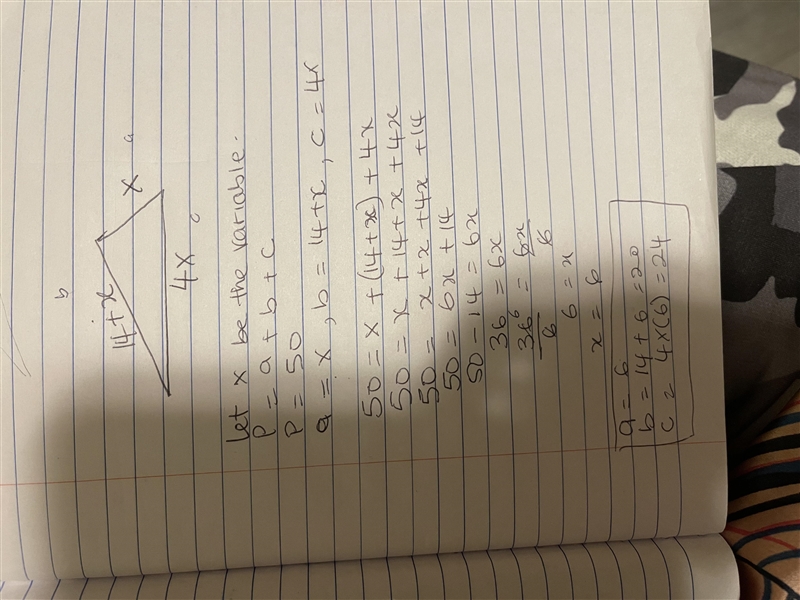 b
14+x
x a
4x c
let x be the variable.
P = a + b + c
P = 50
a = x , b = 14+x , c = 4x
50 = x + (14+x) + 4x
50 = x + 14 + x + 4x
50 = x + x + 4x + 14
50 = 6x + 14
50 - 14 = 6x
36 = 6x
36 6 = 6x
6 6
6 = x
x = 6
a = 6
b = 14 + 6 = 20
c = 4x(6) = 24